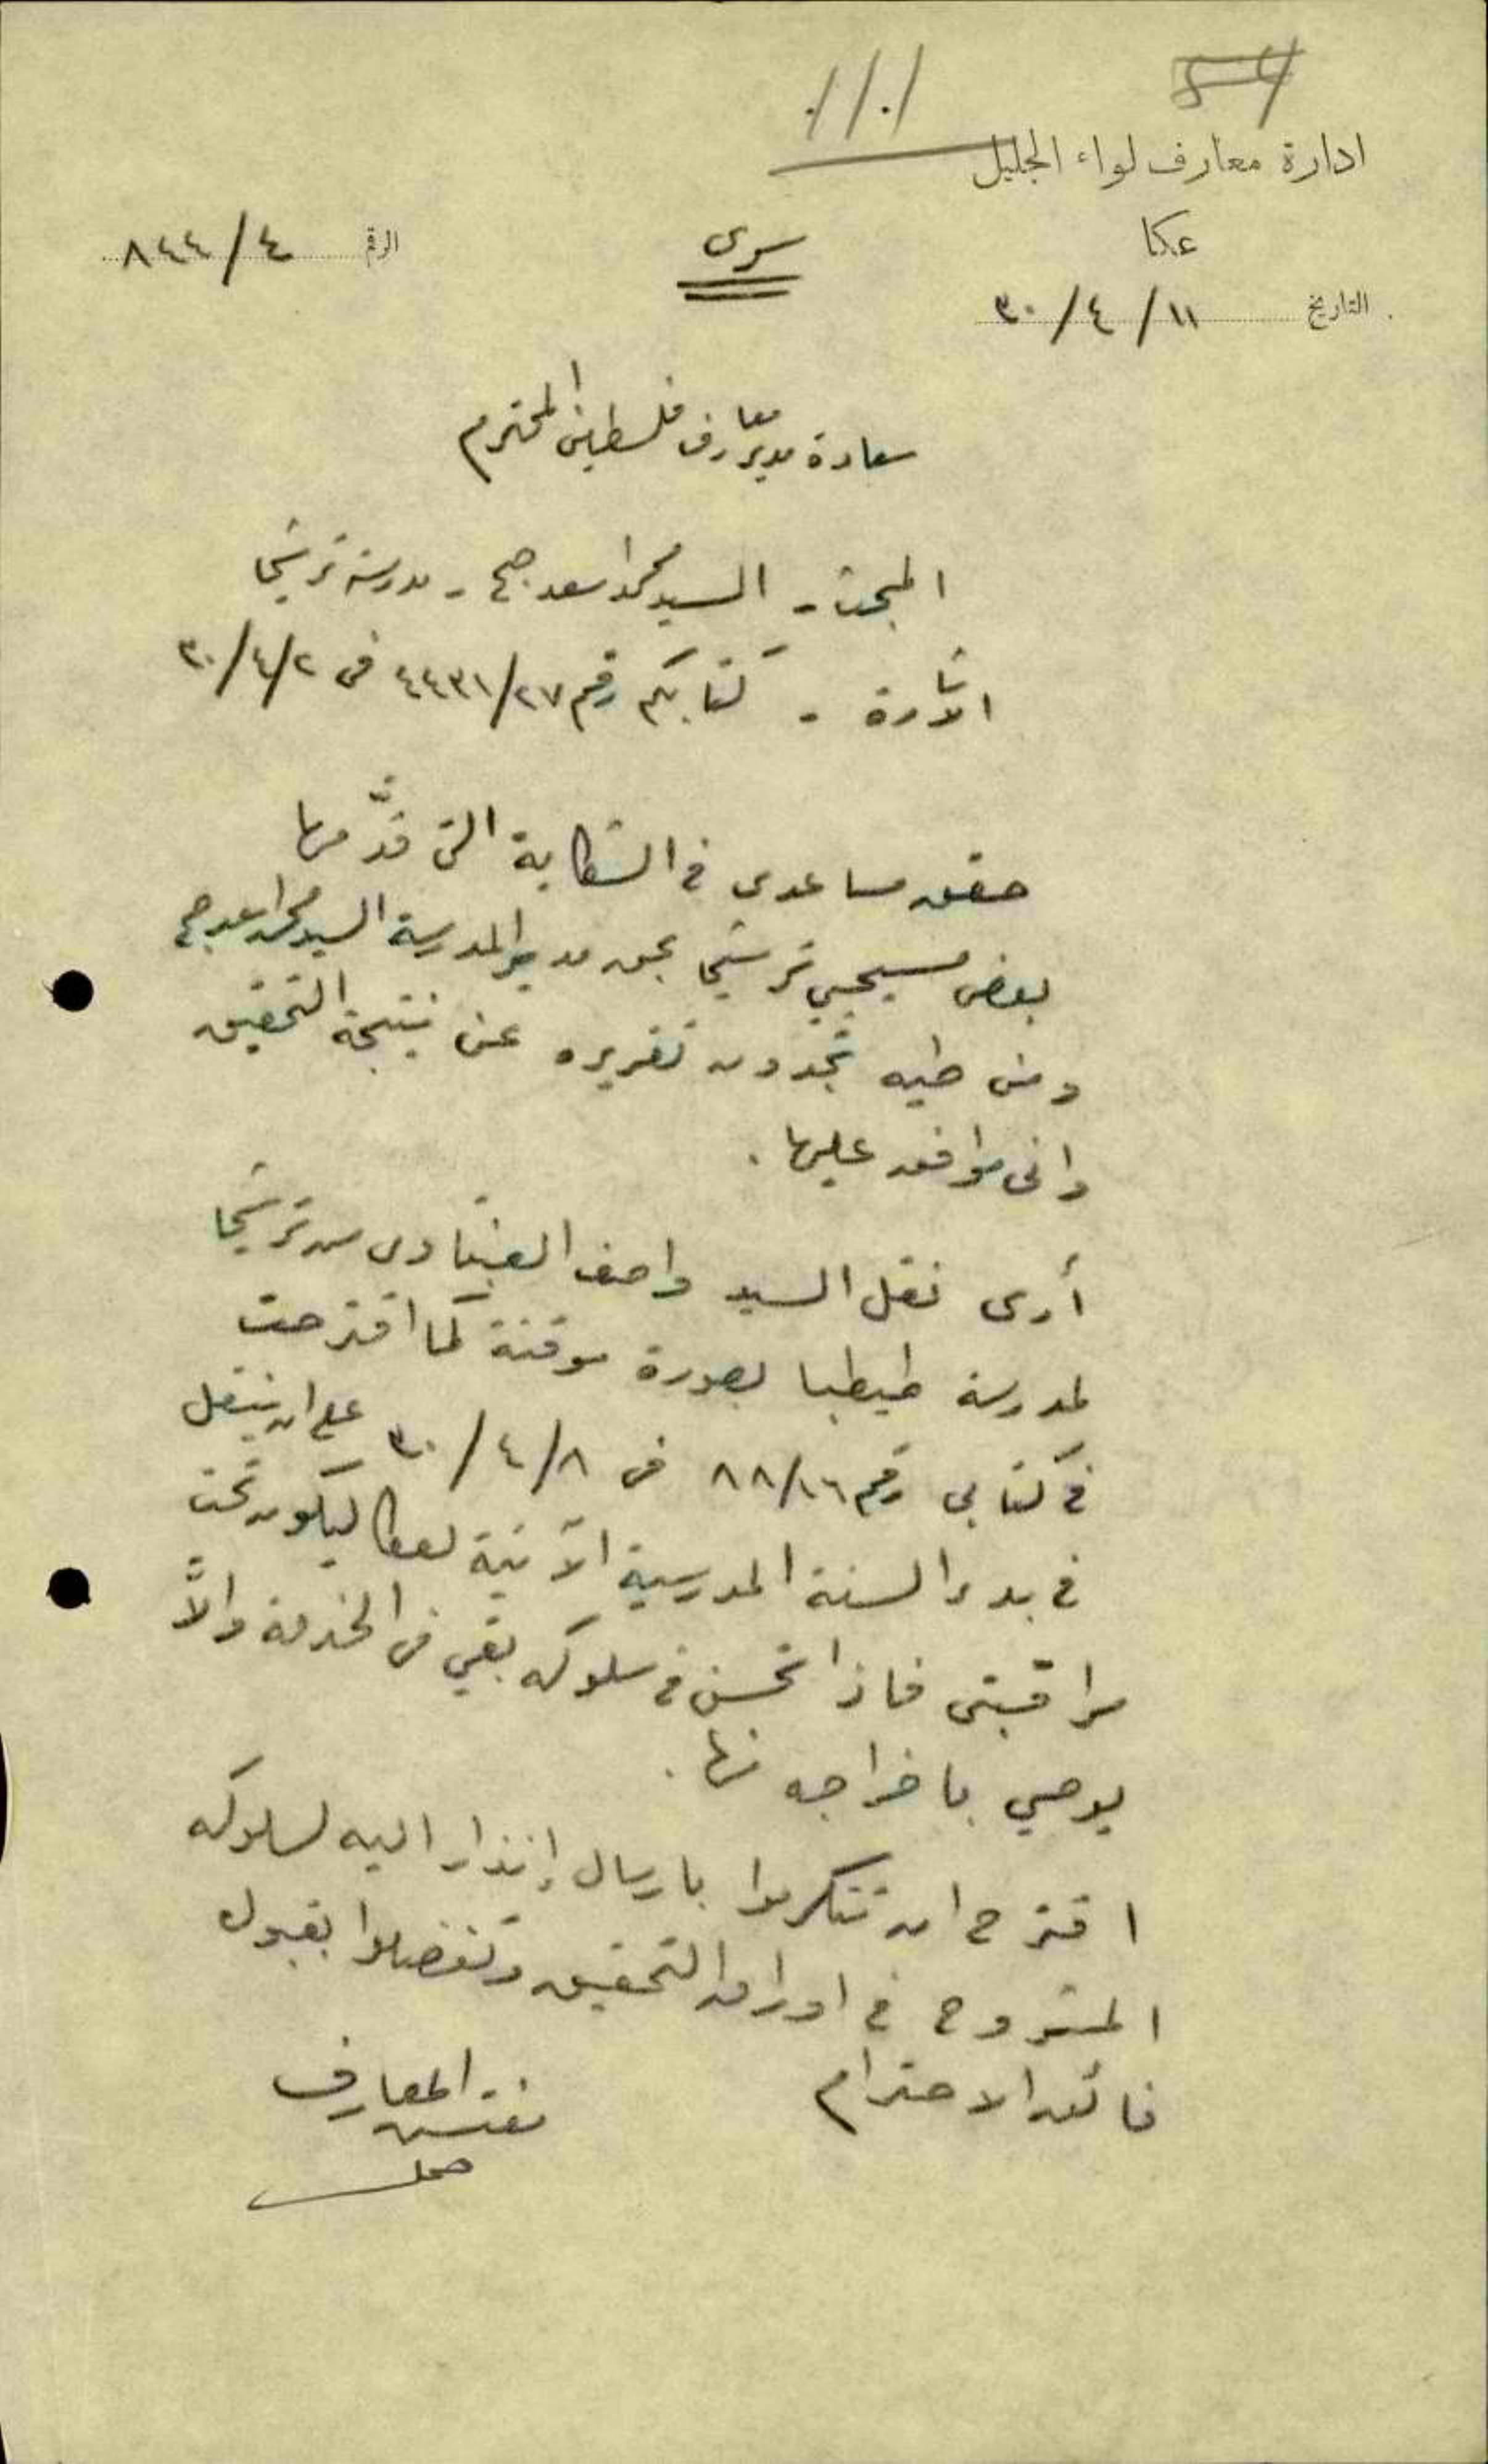 54
ادارة معارف لواء الجليل
عكا
سرى
الرقم ٤/٨٤٤
التاريخ ١١/٤/٣٠
سعادة مدير معارف فلسطين المحترم
المبحث - السيد محمد اسعد صبح - مدرسة ترشيحا
الاشارة - كتابكم رقم ٢٧/٤٤٣١ فى ٢/٤/٣٠
حقق مساعدى في الشكاية التى قدَّمها
بعض مسيحيي ترشيحا بحق مدير المدرسة السيد محمد اسعد صبح
ومن طيه تجدون تقريره عن نتيجة التحقيق
وانى موافق عليها .
أرى نقل السيد واصف من ترشيحا
لمدرسة طيطبا بصورة موقتة كما اقترحت
في كتابي رقم ٨٨/١٦ فى ٨/٤/٣٠ على ان ينتقل
في بدء السنة المدرسية الآتية لعكا ليكون تحت
مراقبتى فاذا تحسن في سلوكه بقي فى الخدمة والاَّ
يوصي باخراجه منها .
اقترح ان تتكرموا بارسال إنذار اليه لسلوكه
المشروح في اوراق التحقيق وتفضلوا بقبول
فائق الاحترام
مفتش المعارف